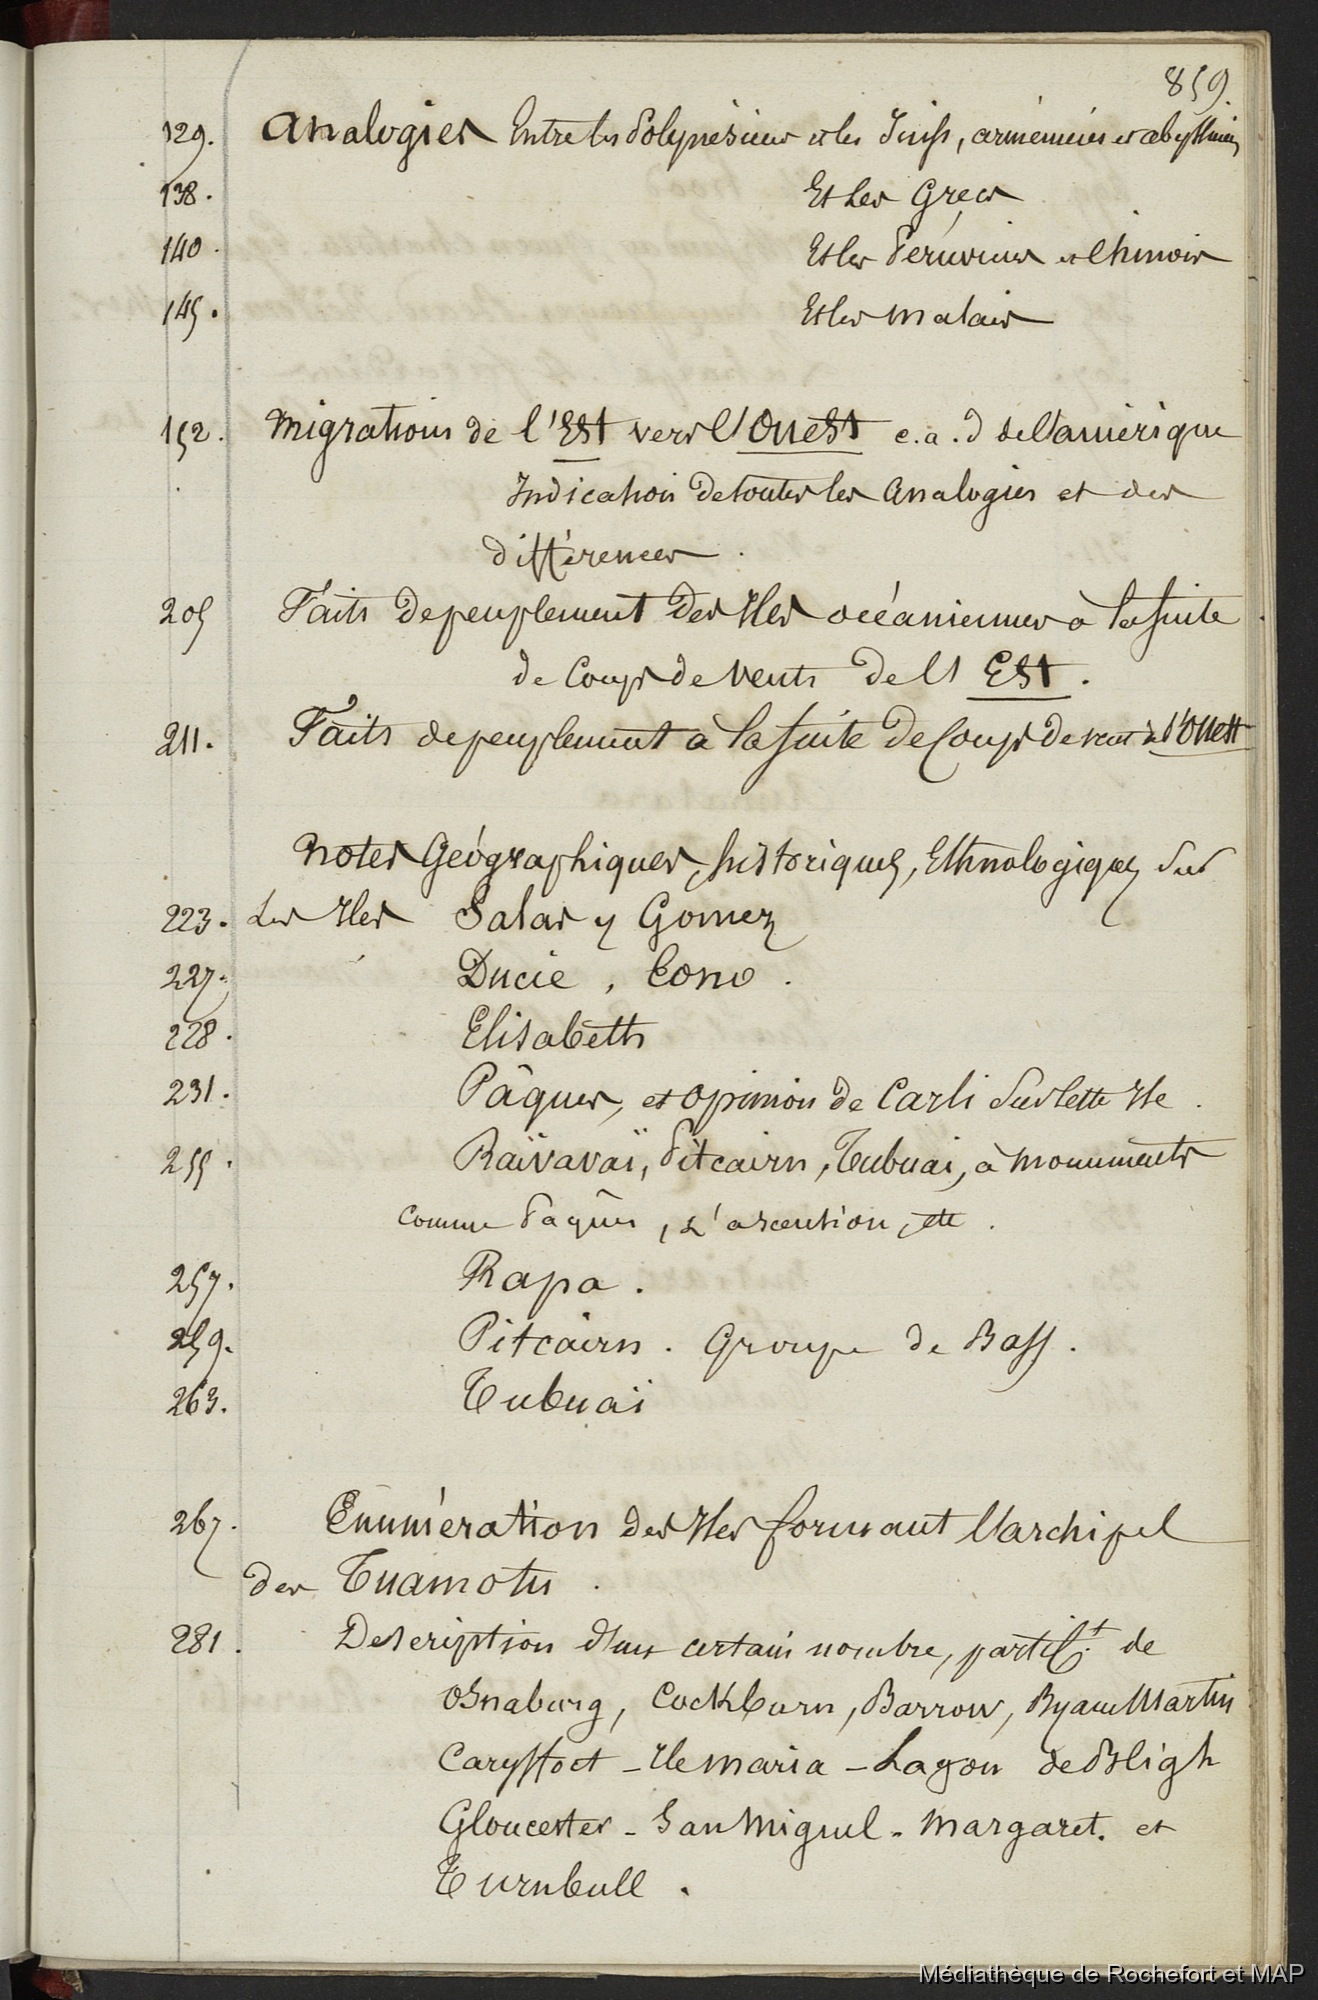 859.
129. Analogies Entre les Polynésiens et les Juifs, arméniens et abyssins
138. Et les Grecs
140. Et les Péruviens et Chinois
145. Et les malais
152. Migrations de l'Est vers l'Ouest c.a.d de l'amérique
Indication de toutes les Analogies et des
différences.
205 Faits de peuplement des Iles océaniennes à la suite
de Coups de vents de l'Est.
211. Faits de peuplement à la suite de Coups de vent de l'Ouest
Notes Géographiques, historiques, Ethnologiques sur
223. Les Iles Salas y Gomez
227. Ducie,
228. Elisabeth
231. Pâques, et opinion de Carli sur cette Ile.
255. Raïvavaï, Pitcairn, Tubuai, à monuments
comme Pâques, L'ascention, etc.
257. Rapa.
259. Pitcairn. Groupe de Bass.
263. Tubuaï
267. Enumération des Iles formant l'archipel
des Tuamotu.
281. Description d'un certain nombre, partict. de
Osnaburg, Cockburn, Barrow, Byam Martin
Carysfoot - Ile maria - Lagon de Bligh
Gloucester - San Miguel - Margaret. et
Turnbull.
Médiathèque de Rochefort et MAP